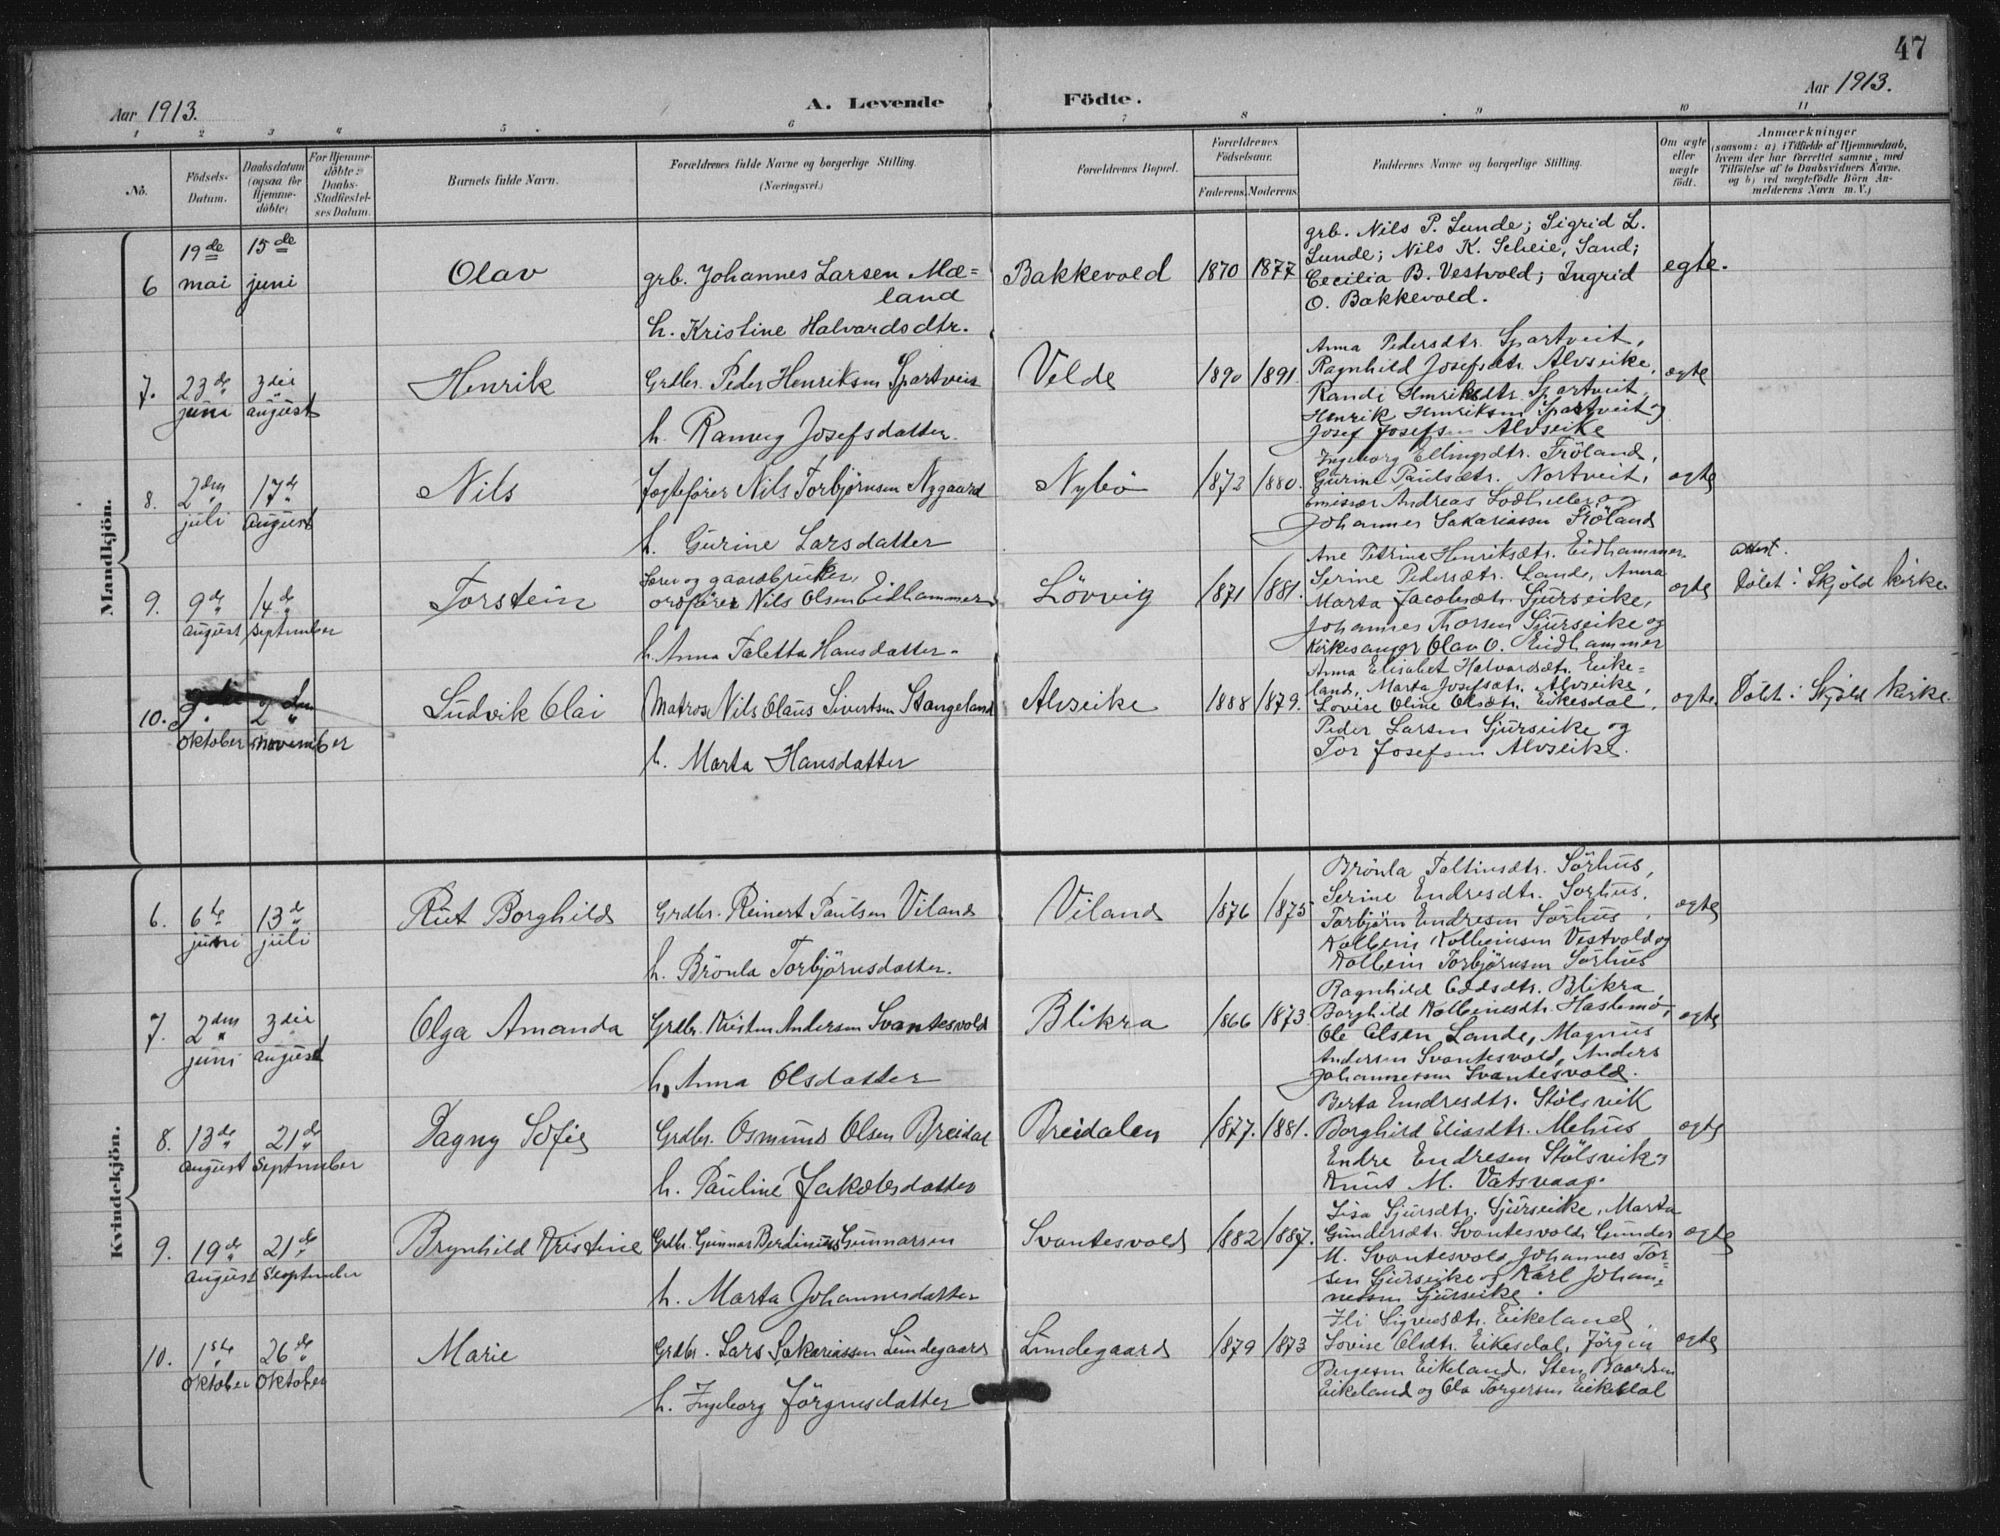 47
Aar 1913.
A. Levende Födte.
Aar 1913.
1 2 3 4 5 6 7 8 9 10 11
No.
Födsels-
Datum.
Daabsdatum
(ogsaa for
Hjemme-
döbte)
For Hjemme-
döbte:
Daabs-
Stadfæstel-
ses Datum.
Barnets fulde Navn.
Forældrenes fulde Navne og borgerlige Stilling.
(Næringsvei.)
Forældrenes Bopæl.
Forældrenes
Födselsaar.
Faderens. Moderens.
Faddernes Navne og borgerlige Stilling.
Om ægte
eller
uægte
födt.
Anmærkninger
(saasom: a) i Tilfælde af Hjemmedaab,
hvem der har forrettet samme, med
Tilföielse af to Daabsvidners Navne.
og b) ved uægtefödte Börn An-
melderens Navn m. V.)
Mandkjön.
6
19de mai
15de juni
Olav
grb. Johannes Larsen Mæ=
land
h. Kristine Halvardsdtr.
Bakkevold
1870 1877
grb. Nils P. Lunde; Sigrid L.
Lunde; Nils K. Scheie, Sand;
Cecilia B. Vestvold; Ingrid
O. Bakkevold.
egte.
7.
23de juni
3die august
Henrik
Grdbr. Peder Henriksen Spartveit
h. Ramvig Josefsdatter.
Velde
1890 1891.
Anna Pedersdtr. Spartveit,
Ragnhild Josefsdtr. Alvseike,
Randi Henriksdtr. Spartveit,
Henrik Henriksen Spartveit og
Josef Josefsen Alvseike
ægte
8.
2den juli
17de august
Nils
Nils Torbjörnsen Nygaard
h. Gurine Larsdatter
Nybö
1872 1880.
Ingeborg Ellingsdtr. Fröland,
Gurine Paulsdtr. Nortveit,
Emissær Andreas og
Johannes Sakariassen Fröland
ægte
9.
9de august
14de september
Torstein
og gaardbruker,
Nils Olsen Eidhammer
h. Anna Taletta Hansdatter.
Lövvig
1871 1881.
Ane Petrine Henriksdtr. Eidhammer
Serine Pedersdtr. Lande, Anna
Marta Jacobsdtr. Sjurseike,
Johannes Thorsen Sjurseike og
Kirkesanger Olav O. Eidhammer
ægte
attest.
Döbt i Skjold kirke
10.
oktober
2den november
Ludvik Olai
Matros Nils Olaus Sivertsen Stangeland
h. Marta Hansdatter
Alvseike
1888 1879.
Anna Elisabet Halvardsdtr. Eike=
land, Marta Josefsdtr. Alvseike,
Lovise Oline Olsdtr. Eikesdal,
Peder Larsen Sjurseike og
Tor Josefsen Alvseike.
ægte.
Döbt i Skjold kirke.
Kvindekjön.
6.
6te juni
13de juli
Rut Borghild
Grdbr. Reinert Paulsen Viland
h. Brönla Torbjörnsdatter.
Viland
1876 1875
Brönla Sörhus,
Serine Endresdtr. Sörhus.
Torbjörn Endresen Sörhus,
Kolbein Kolbeinsen Vestvold og
Kolbein Torbjörnsen Sörhus
ægte
7.
2den juni
3die august
Olga Amanda
Grdbr. Kristen Andersen Svantesvold
h. Anna Olsdatter
Blikra
1866 1873
Ragnhild Oddsdtr. Blikra
Borghild Kolbeinsdtr. Haslemo,
Ole Olsen Lande, Magnus
Andersen Svantesvold, Anders
Johannessen Svantesvold.
ægte
8.
13de august
21de september
Dagny Sofie
Grdbr. Osmund Olsen Breidal
h. Pauline Jakobsdatter
Breidalen
1877. 1881.
Berta Endresdtr. Stölsvik
Borghild Eliasdtr. Mehus
Endre Endresen Stölsvik,
Knut M. Vatsvaag.
ægte
9.
19de august
21de september
Brynhild Kristine
Grdbr. Gunnar Berdinius Gunnarsen
h. Marta Johannesdatter
Svantesvold
1882 1887.
Lisa Sjursdtr. Sjurseike, Marta
Gundersdtr. Svantesvold, Gunder
M. Svantesvold, Johannes Tor=
sen Sjurseike og Karl Johan=
nessen Sjurseike.
ægte
10.
1ste oktober
26de oktober
Marie
Grdbr. Lars Sakariassen Lundegaard
h. Ingeborg Jörgensdatter
Lundegaard
1879 1873
Ili Sigvesdtr. Eikeland,
Lovise Olsdtr. Eikesdal, Jörgen
Bergesen Eikeland, Sten Baardsen
Eikeland og Ola Torgersen Eikesdal
ægte